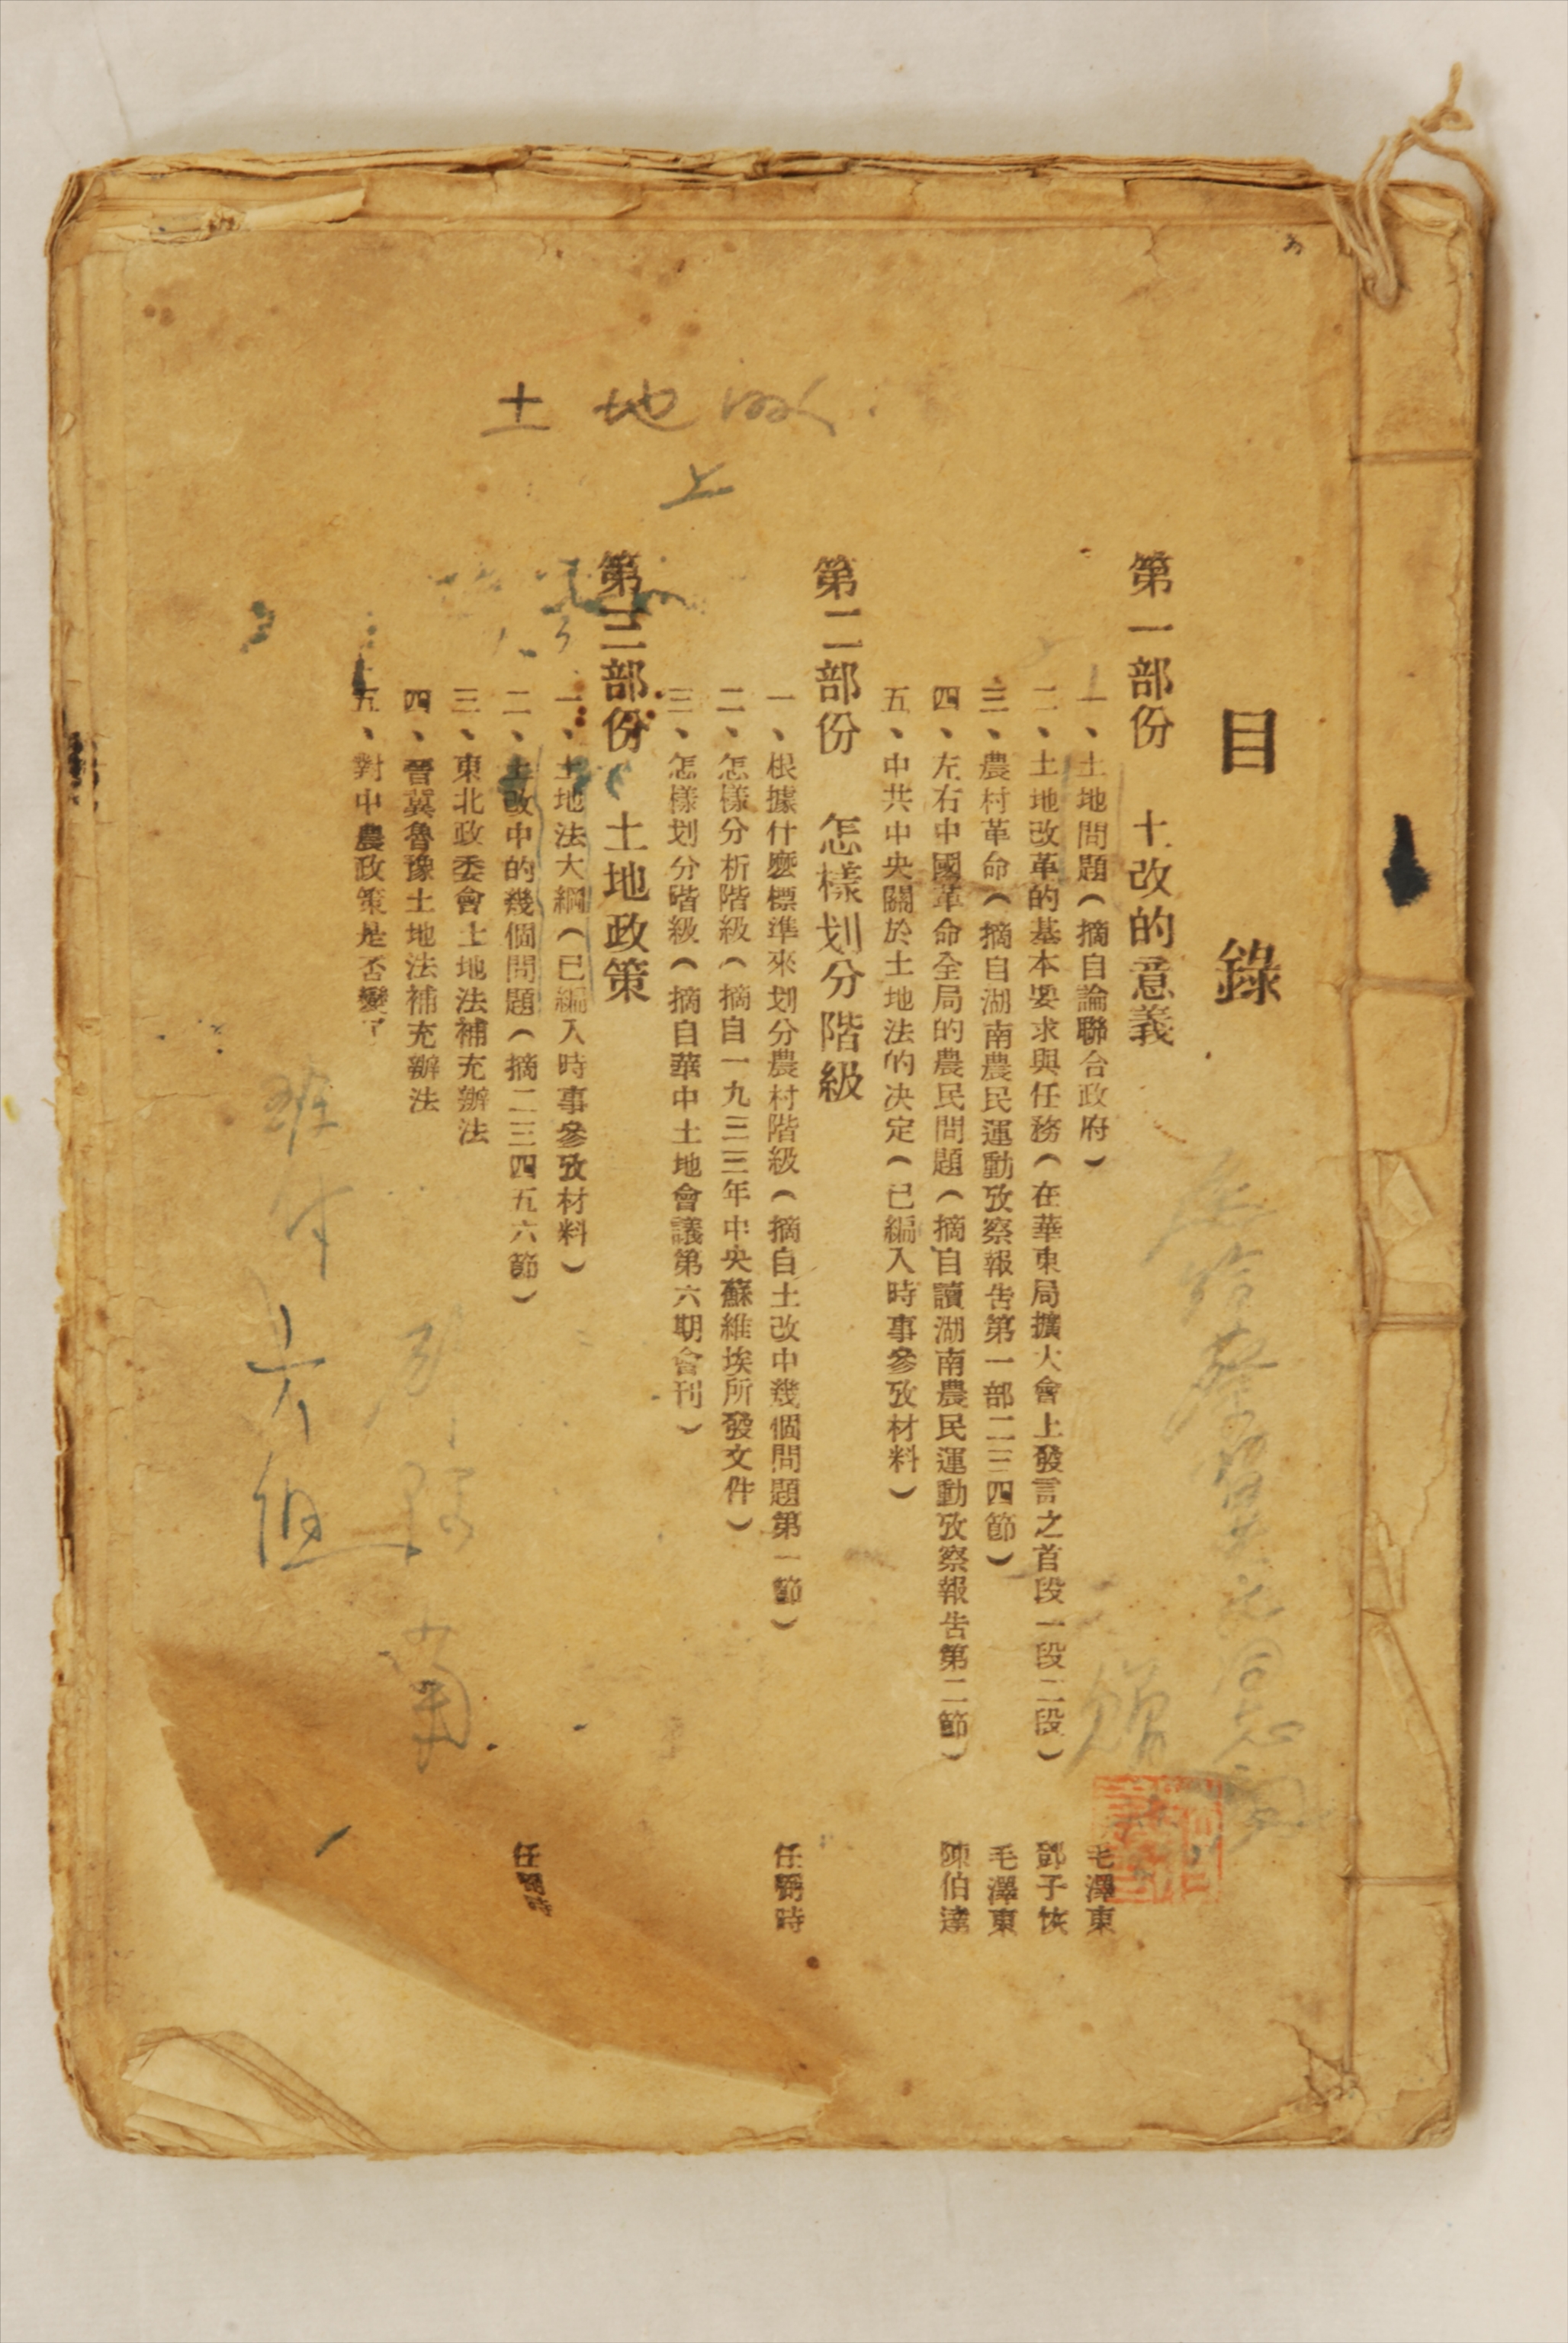 目錄
第一部份 土改的意義
一、土地問題（摘自論聯合政府） 毛澤東
二、土地改革的基本要求與任務（在華東局擴大會上發言之首段一段二段） 鄧子恢
三、農村革命（摘自湖南農民運動攷察報告第一部二三四節） 毛澤東
四、左右中國革命全局的農民問題（摘自讀湖南農民運動攷察報告第二節） 陳伯達
五、中共中央關於土地法的决定（已編入時事參攷材料）
第二部份 怎樣划分階級
一、根據什麽標準來划分農村階級（摘自土改中幾個問題第一節） 任弼時
二、怎樣分析階級（摘自一九三三年中央蘇維埃所發文件）
三、怎樣划分階級（摘自華中土地會議第六期會刊）
第三部份 土地政策
一、土地法大綱（已編入時事參攷材料）
二、土改中的幾個問題（摘二三四五六節） 任弼時
三、東北政委會土地法補充辦法
四、晉冀魯豫土地法補充辦法
五、對中農政策是否變了
土地
上
同志
贈
六組